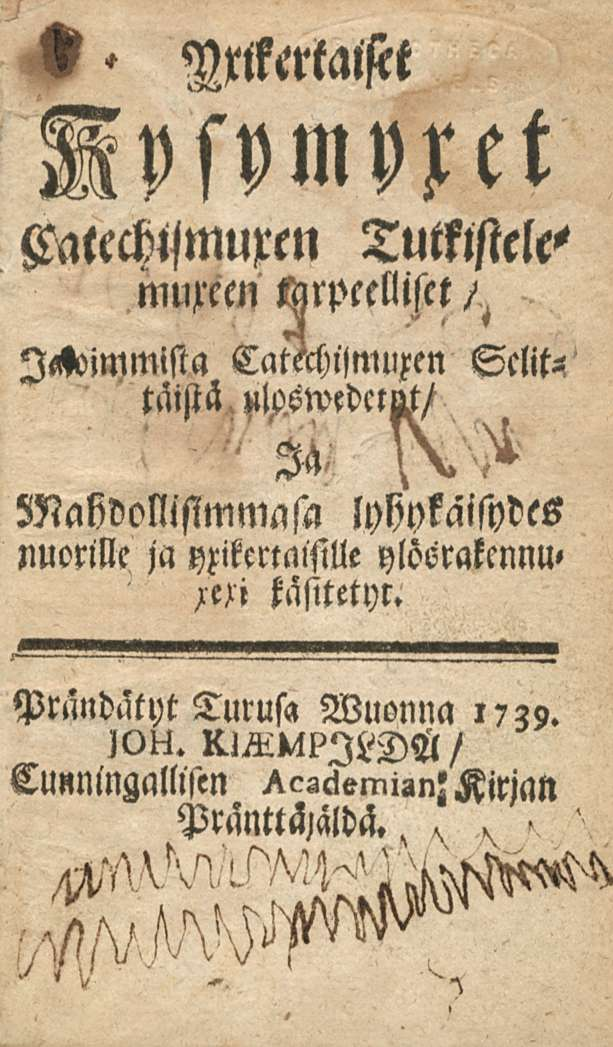 Yxikertaiset
Kysymyxet
Catechismuxen Tutkistele-
muxeen tarpeelliset /
Jaloimmista Catechismuxen Selit-
täistä uloswedetyt /
Ja
Mahdollisimmasa lyhykäisydes
nuorille ja yxikertaisille ylösrakennu-
xexi käsitetyt.
Prändätyt Turusa Wuonna 1739.
JOH. KIÆMPILDÄ /
Cunningallisen Academian: Kirjan
Pränttäjäldä.